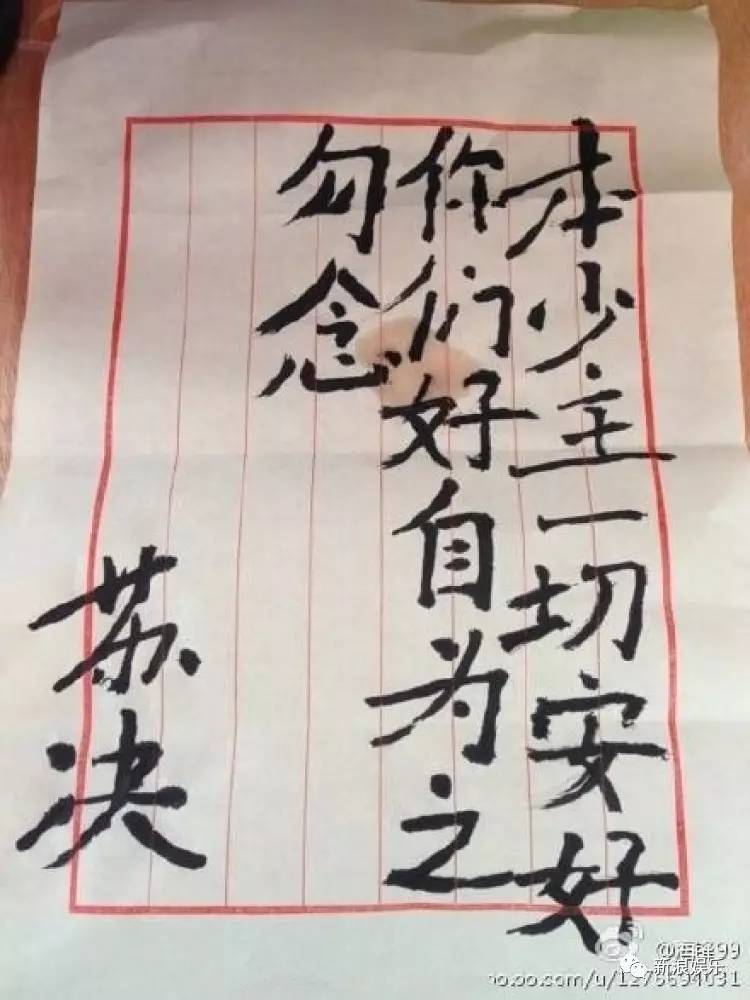 本少主一切安好
你们好自为之
勿念
苏决
@海锋99
新浪娱乐
oo.oo/u/1276694031